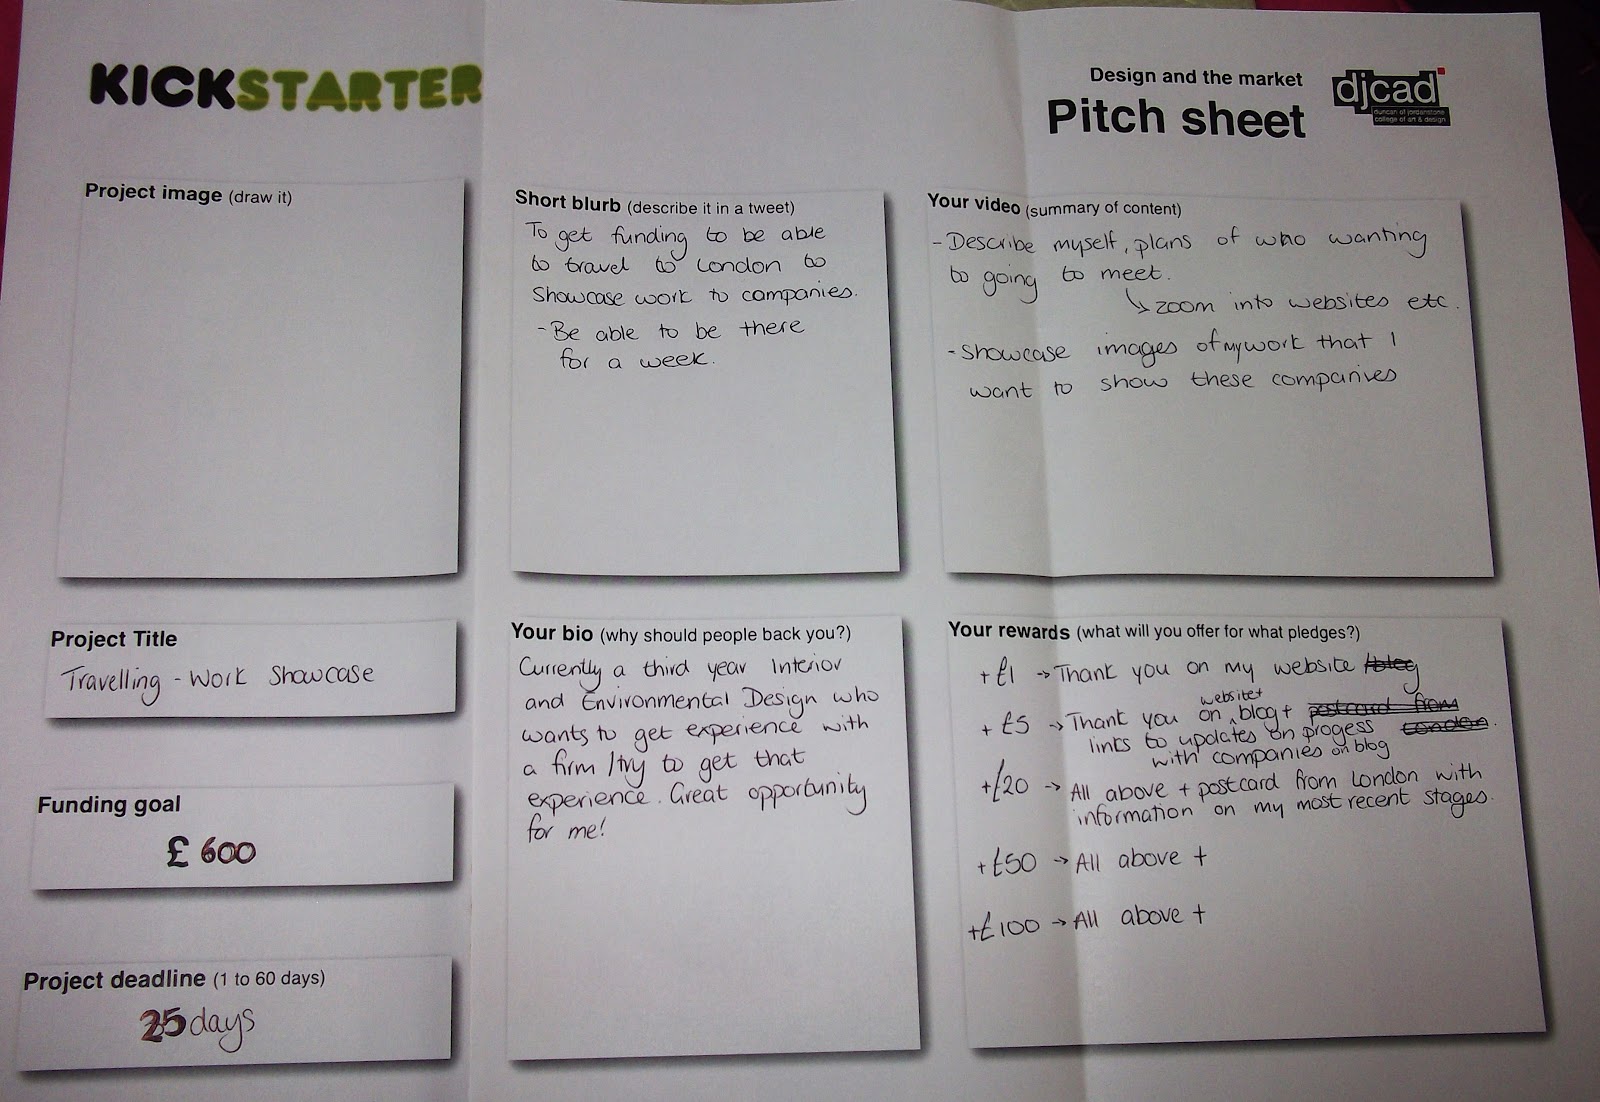 KICKSTARTER
Design and the market
Pitch sheet
djcad
duncan of jordanstone
college of art & design
Project image (draw it)
Short blurb (describe it in a tweet)
To get funding to be able
to travel to London to
showcase work to companies.
- Be able to be there
for a week.
Your video (summary of content)
- Describe myself, plans of who wanting
to going to meet.
↳ zoom into websites etc.
- showcase images of my work that I
want to show these companies
Project Title
Travelling - Work Showcase
Funding goal
£ 600
Project deadline (1 to 60 days)
25 days
Your bio (why should people back you?)
Currently a third year Interior
and Environmental Design who
wants to get experience with
a firm / try to get that
experience. Great opportunity
for me!
Your rewards (what will you offer for what pledges?)
+ £1 → Thank you on my website / blog
website +
+ £5 → Thank you on ^ blog + postcard from
links to updates on progess London.
with companies on blog
+ £20 → All above + postcard from London with
information on my most recent stages.
+ £50 → All above +
+ £100 → All above +